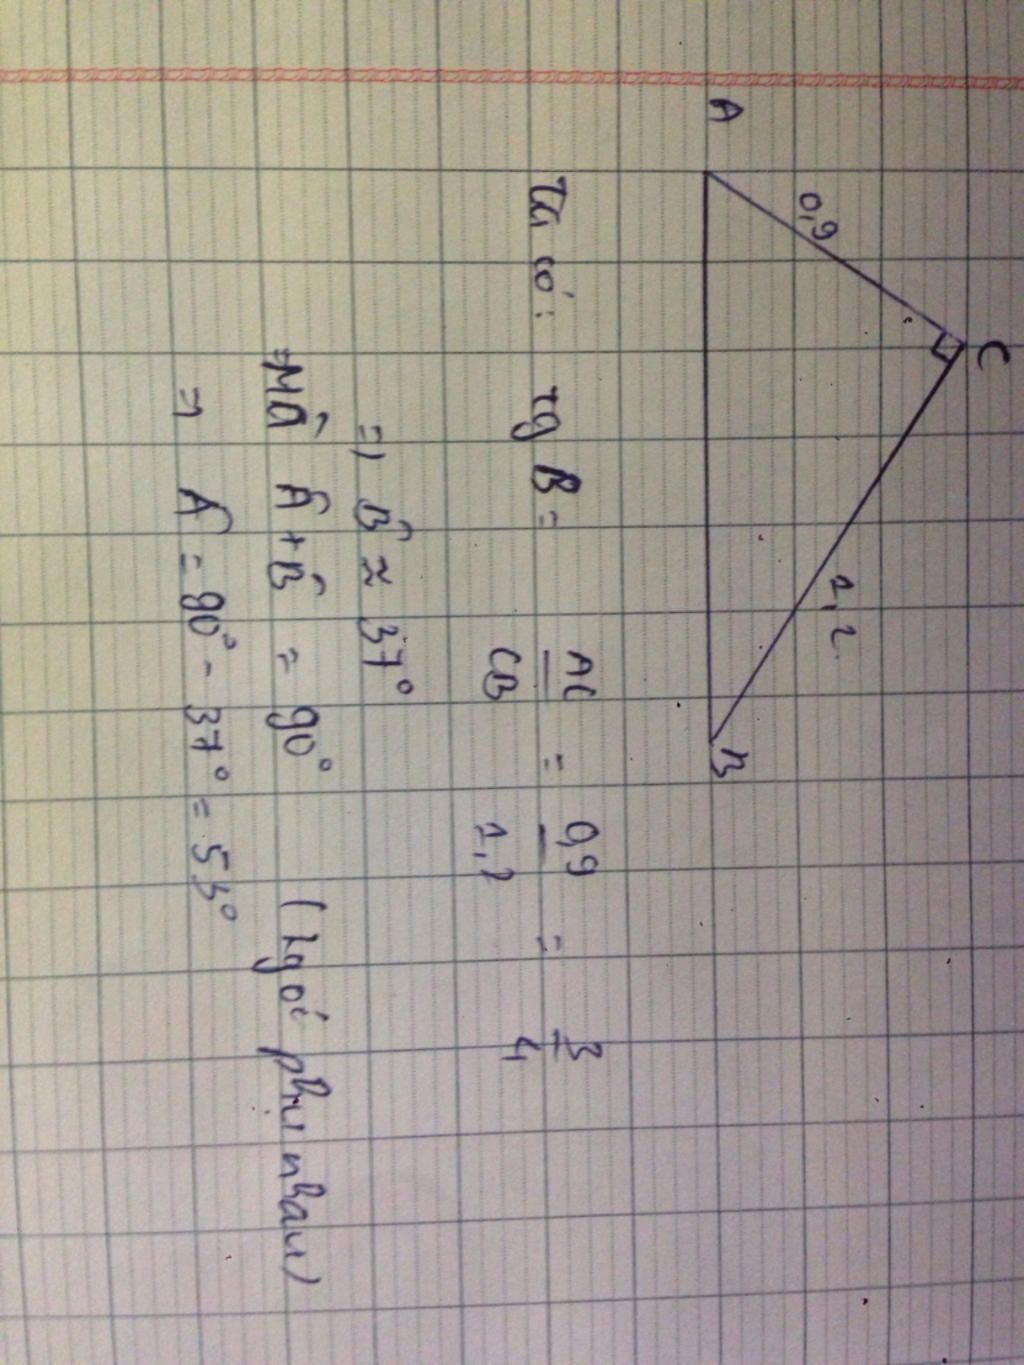 C
0,9
1,2
A
B
Ta có: tg B = AC/CB = 0,9/1,2 = 3/4
=> B̂ ≈ 37°
Mà Â + B̂ = 90° (2 góc phụ nhau)
=> Â = 90° - 37° = 53°